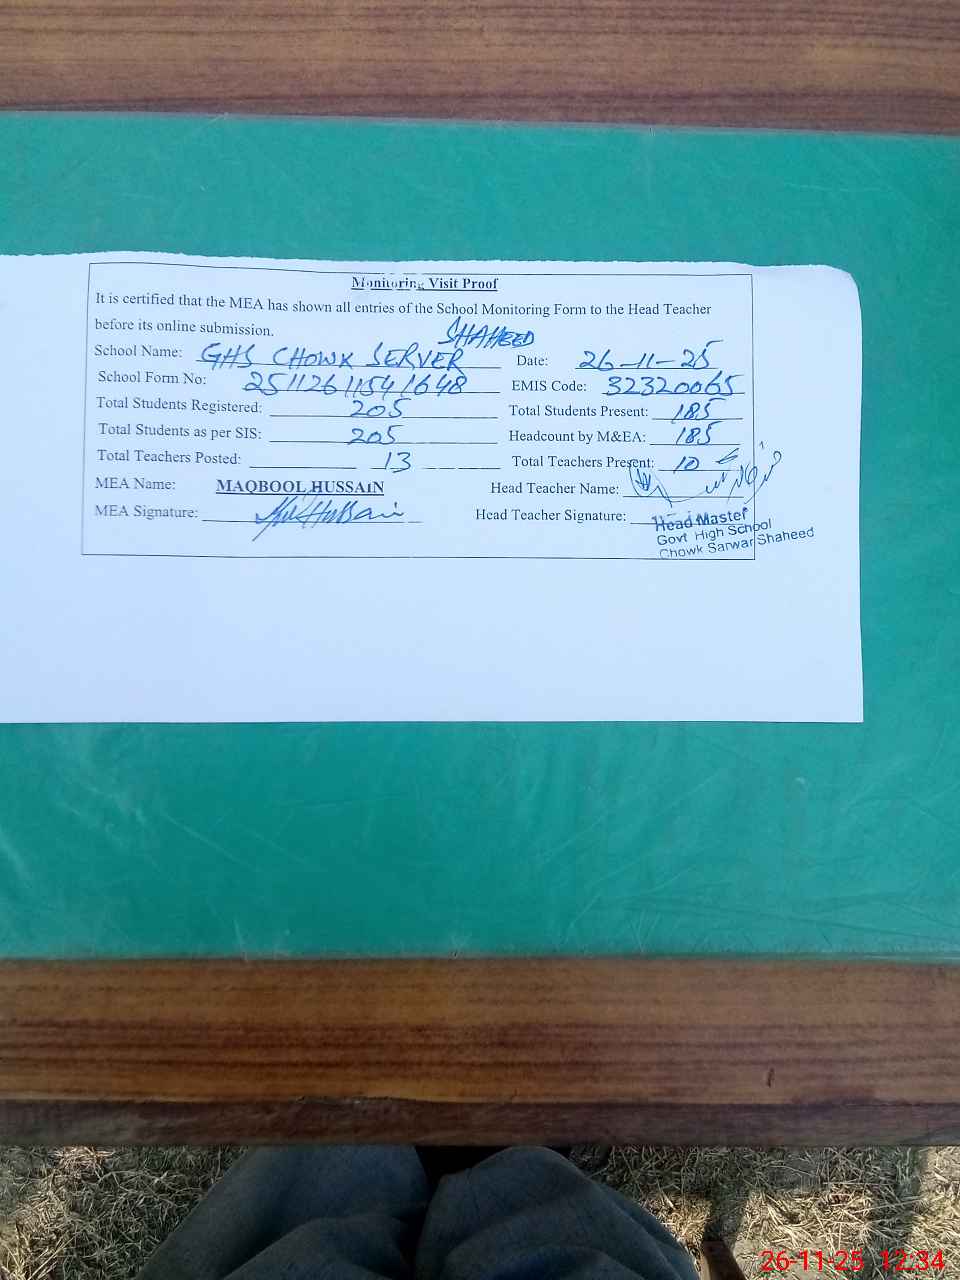 Monitoring Visit Proof
It is certified that the MEA has shown all entries of the School Monitoring Form to the Head Teacher
before its online submission.
SHAHEED
School Name: GHS CHOWK SERVER Date: 26-11-25
School Form No: 25112611541648 EMIS Code: 32320065
Total Students Registered: 205 Total Students Present: 185
Total Students as per SIS: 205 Headcount by M&EA: 185
Total Teachers Posted: 13 Total Teachers Present: 10
MEA Name: MAQBOOL HUSSAIN Head Teacher Name:
MEA Signature: Hussain Head Teacher Signature:
Head Master
Govt High School
Chowk Sarwar Shaheed
26-11-25 12:34